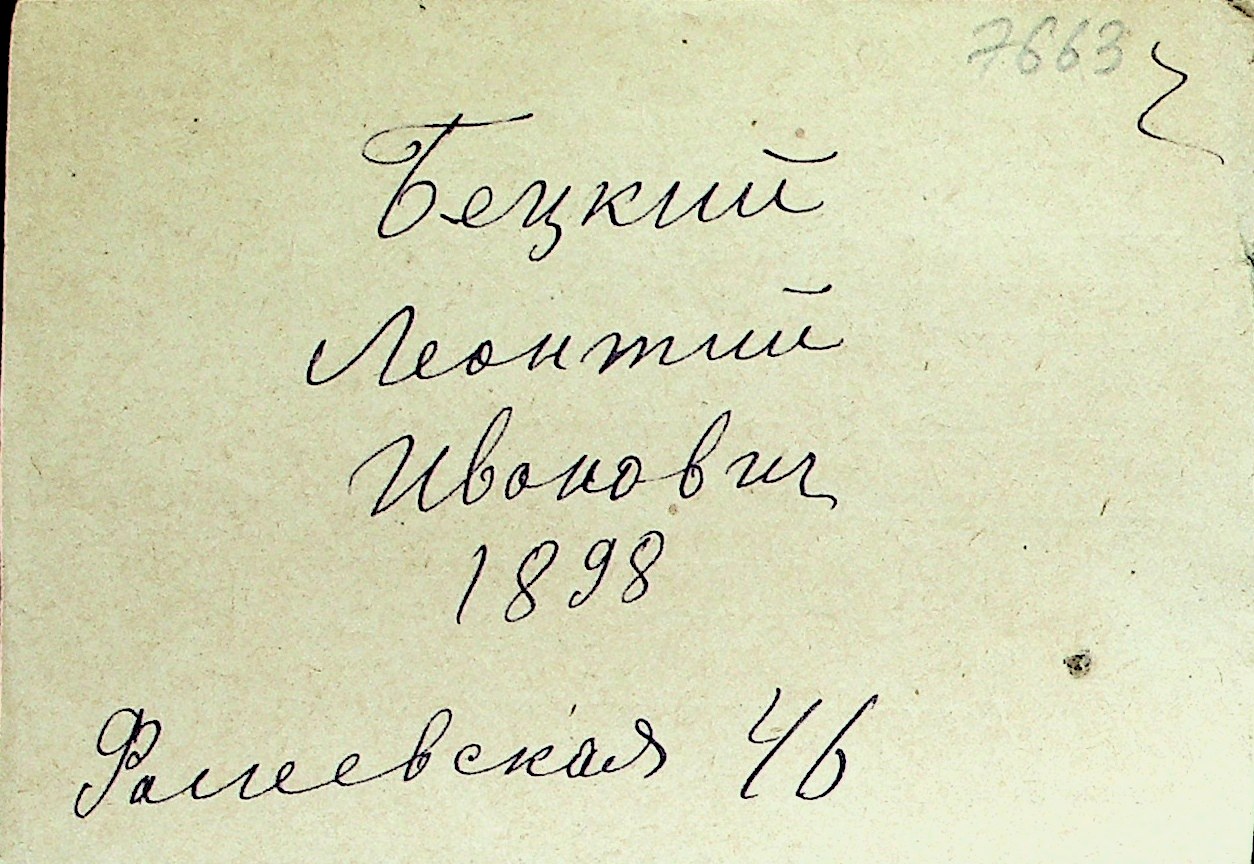 7663
Бецкий
Леонтий
Иванович
1898
46